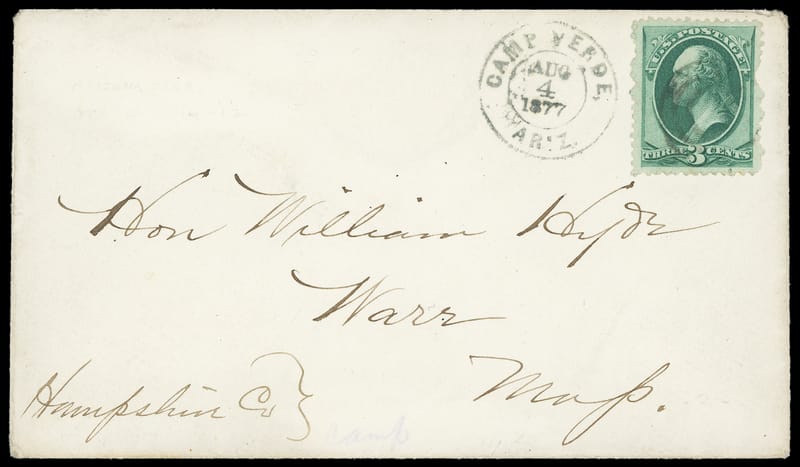 CAMP VERDE,
AUG
4
1877
ARIZ.
U.S. POSTAGE
THREE 3 CENTS
Hon William Hyde
Ware
Mass.
Hampshire Co
camp